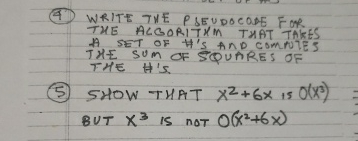 ④ WRITE THE PSEUDOCODE FOR
THE ALGORITHM THAT TAKES
A SET OF #'S AND COMPUTES
THE SUM OF SQUARES OF
THE #'S.
⑤ SHOW THAT X²+6X IS O(X³)
BUT X³ IS NOT O(X²+6X)